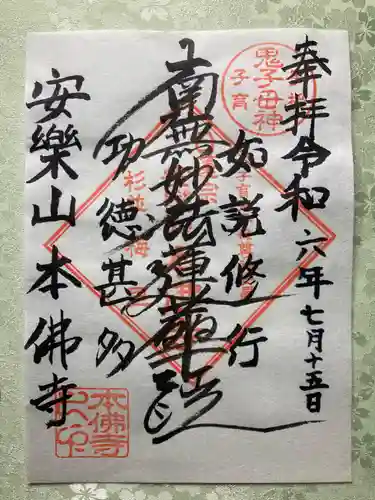 奉拝
令和六年七月十五日
鬼子母神
子育
如説修行
南無妙法蓮華経
功徳甚多
安樂山本佛寺
本佛寺